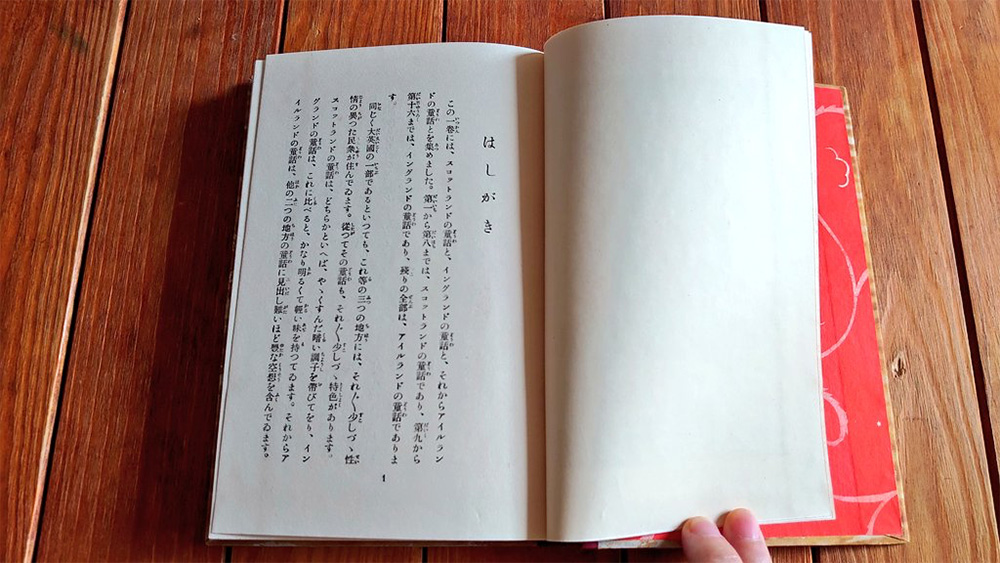 はしがき
この一巻には、スコットランドの童話と、イングランドの童話と、それからアイルラン
ドの童話とを集めました。第一から第八までは、スコットランドの童話であり、第九から
第十六までは、イングランドの童話であり、殘りの全部は、アイルランドの童話でありま
す。
同じく大英國の一部であるといつても、これ等の三つの地方には、それ〴〵少しづゝ性
情の異つた民衆が住んでゐます。從つてその童話も、それ〴〵少しづゝ特色があります。
スコットランドの童話は、どちらかといへば、やゝくすんだ暗い調子を帶びてをり、イン
グランドの童話は、これに比べると、かなり明るくて輕い味を持つてゐます。それからア
イルランドの童話は、他の二つの地方の童話に見出し難いほど豐な空想を含んでゐます。
1